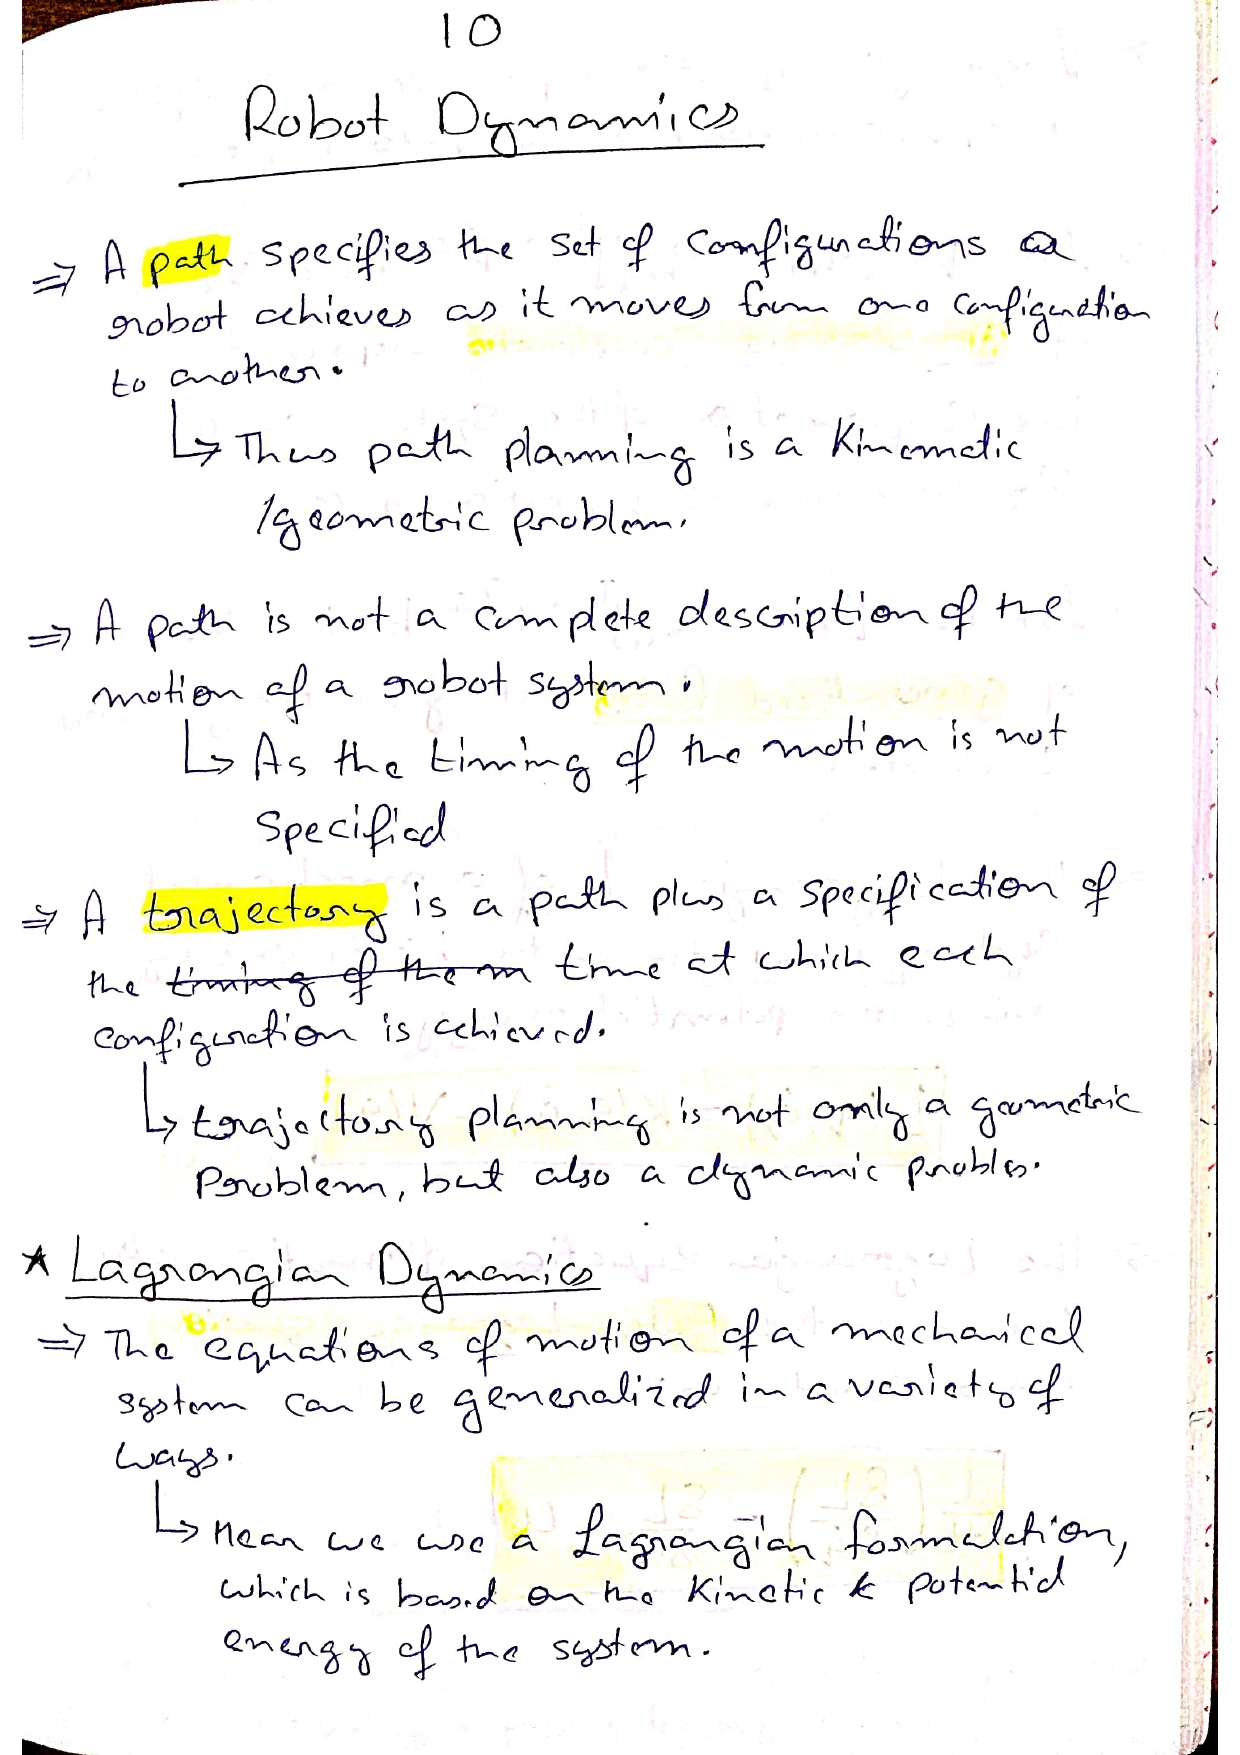 10
Robot Dynamics
⇒ A path specifies the set of configurations a
robot achieves as it moves from one configuration
to another.
↳ Thus path planning is a kinematic
/geometric problem.
⇒ A path is not a complete description of the
motion of a robot system.
↳ As the timing of the motion is not
specified
⇒ A trajectory is a path plus a specification of
the timing of the m time at which each
configuration is achieved.
↳ trajectory planning is not only a geometric
problem, but also a dynamic problem.
★ Lagrangian Dynamics
⇒ The equations of motion of a mechanical
system can be generalized in a variety of
ways.
↳ Hear we use a Lagrangian formulation,
which is based on the Kinetic & potential
energy of the system.